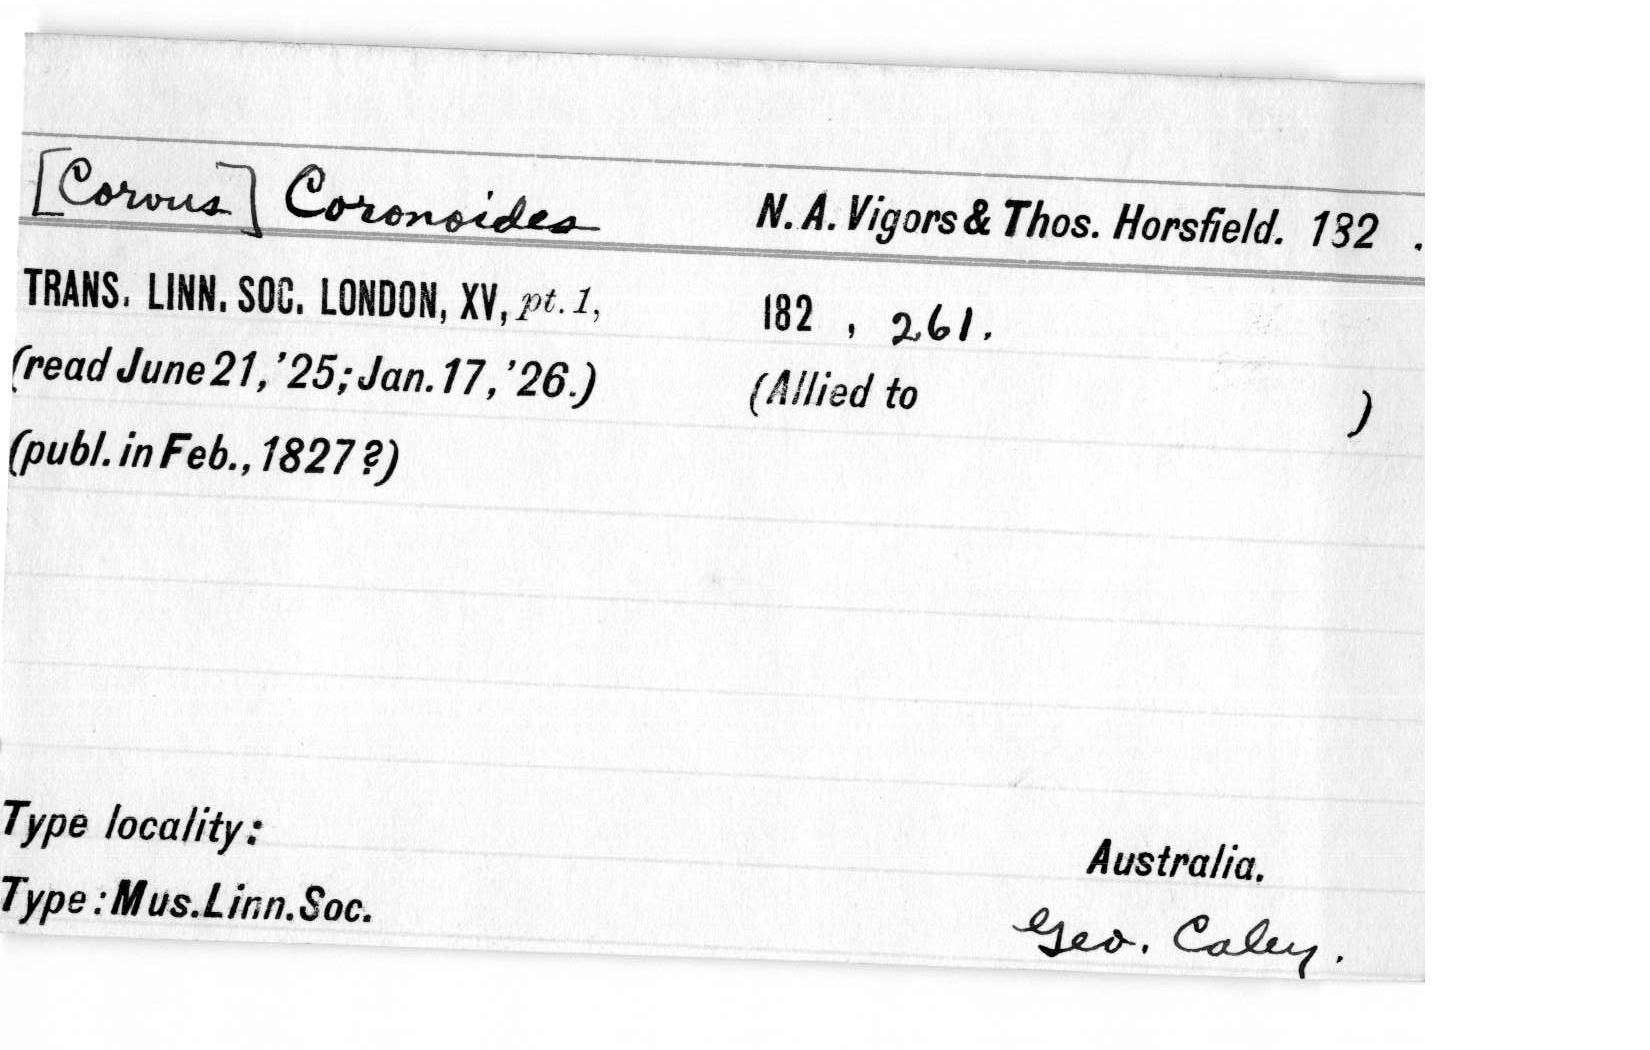 [Corvus] Coronoides N. A. Vigors & Thos. Horsfield. 182 .
TRANS. LINN. SOC. LONDON, XV, pt. 1, 182 , 261.
(read June 21, '25; Jan. 17, '26.) (Allied to )
(publ. in Feb., 1827?)
Type locality: Australia.
Type: Mus. Linn. Soc. Geo. Caley.